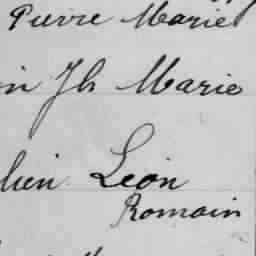 Pierre Marie
in Jh Marie
lien Léon
Romain